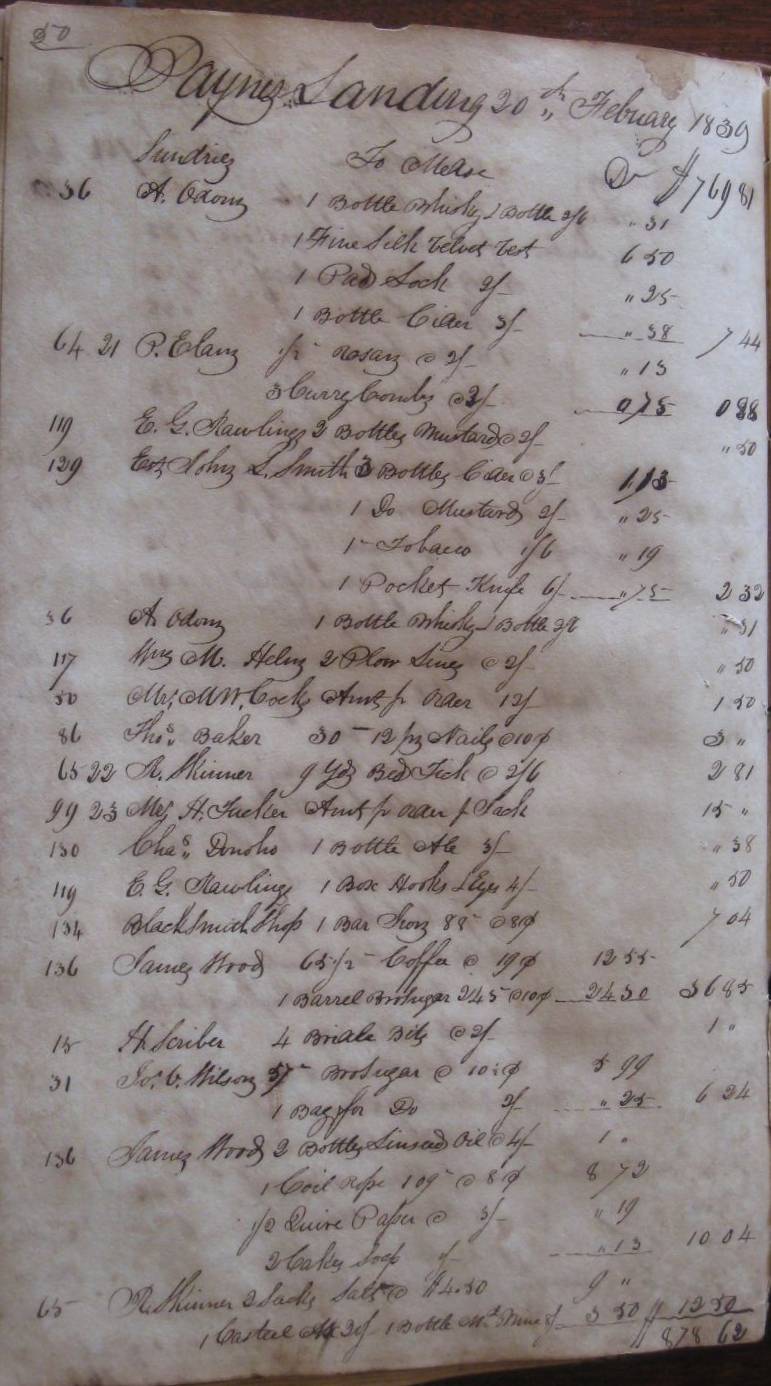 50
Paynes Landing 20th February 1839
Sundries To Mdse Dr $769 81
36 A. Odom 1 Bottle Whisky & Bottle 2/6 " 31
1 Fine Silk Velvet Vest 6 50
1 Pad Lock 2/- " 25
1 Bottle Cider 3/- " 38 7 44
64 21 P. Elam 1/2 Rosam @ 2/- " 13
3 Curry Combs @ 2/- 0 75 0 88
119 E. G. Rawlings 2 Bottles Mustard @ 2/- " 50
129 John S. Smith 3 Bottles Cider @ 3/- 1,13
1 Do Mustard 2/- " 25
1 Tobacco 1/6 " 19
1 Pocket Knife 6/- " 75 2 32
36 A. Odom 1 Bottle Whisky & Bottle " 31
117 Wm M. Helm 2 Plow Lines @ 2/- " 50
50 Mr. M W. Cocks Amt pr Order 12/- 1 50
86 Thos. Baker 30 - 12 pz Nails @ 10¢ 3 "
65 22 R. Skinner 9 Yds Bed Tick @ 2/6 2 81
99 23 H. Tucker Amt pr order Jack 15 "
130 Chas. Donoho 1 Bottle Ale 3/- " 38
119 E. G. Rawlings 1 Box Hooks & Eyes 4/- " 50
134 Blacksmith Shop 1 Bar Iron 88 @ 8¢ 7 04
136 James Wood 65 1/2 Coffee @ 19¢ 12 55
1 Barrel Bro Sugar 245 @ 10¢ 24 30 36 85
15 H. Scriber 4 Bridle Bits @ 2/- 1 "
31 Jos. C. Wilson 57 Bro Sugar @ 10 1/2¢ 5 99
1 Bag for Do 2/- " 25 6 24
136 James Wood 2 Bottles Linseed Oil @ 4/- 1 "
1 Coil Rope 109 @ 8¢ 8 72
1/2 Quire Paper @ 3/- " 19
2 Cakes Soap 1/- " 13 10 04
65 R. Skinner 2 Sacks Salt @ $4.50 9 "
1 2/ 1 Bottle 3 50 12 50
$878 62